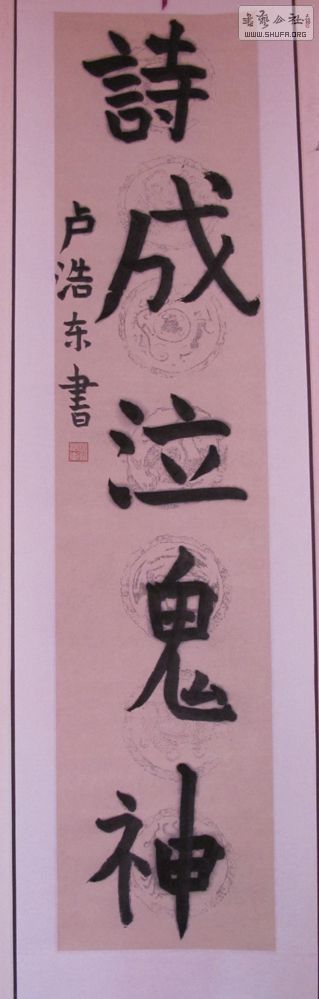 詩成泣鬼神
卢浩东書
書藝公社
WWW.SHUFA.ORG